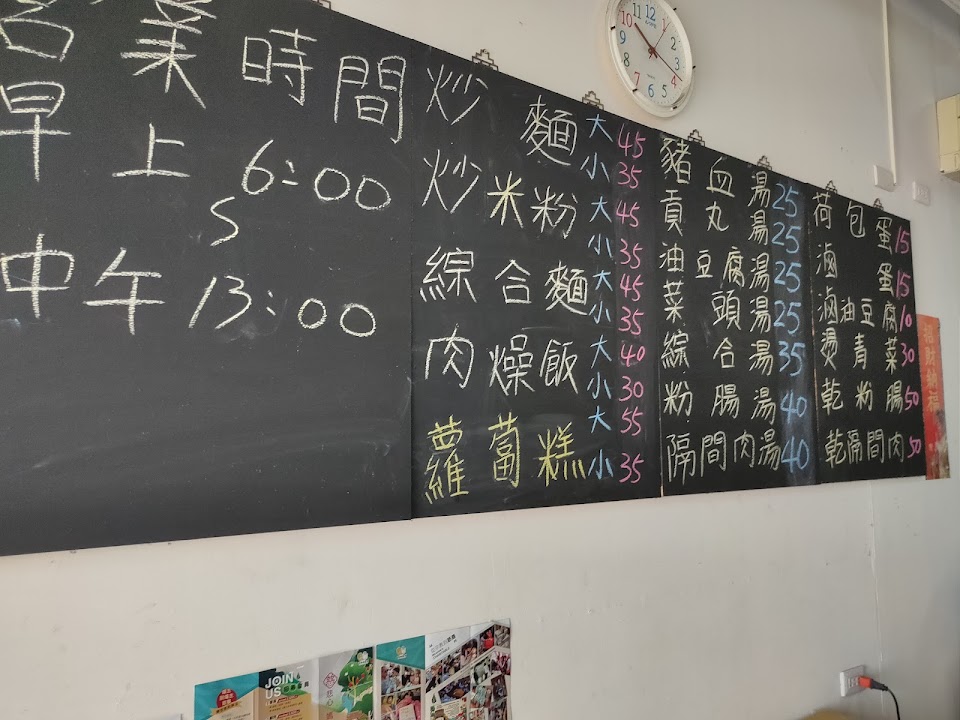 營業時間
早上 6:00
中午 13:00
炒麵 大 45
小 35
炒米粉 大 45
小 35
綜合麵 大 45
小 35
肉燥飯 大 40
小 30
蘿蔔糕 大 55
小 35
豬血湯 25
貢丸湯 25
油豆腐湯 25
菜頭湯 25
綜合湯 35
粉腸湯 40
隔間肉湯 40
荷包蛋 15
滷蛋 15
滷油豆腐 10
燙青菜 30
乾粉腸 50
乾隔間肉 50
招財納福
12
1
2
3
4
5
6
7
8
9
10
11
JOIN
US